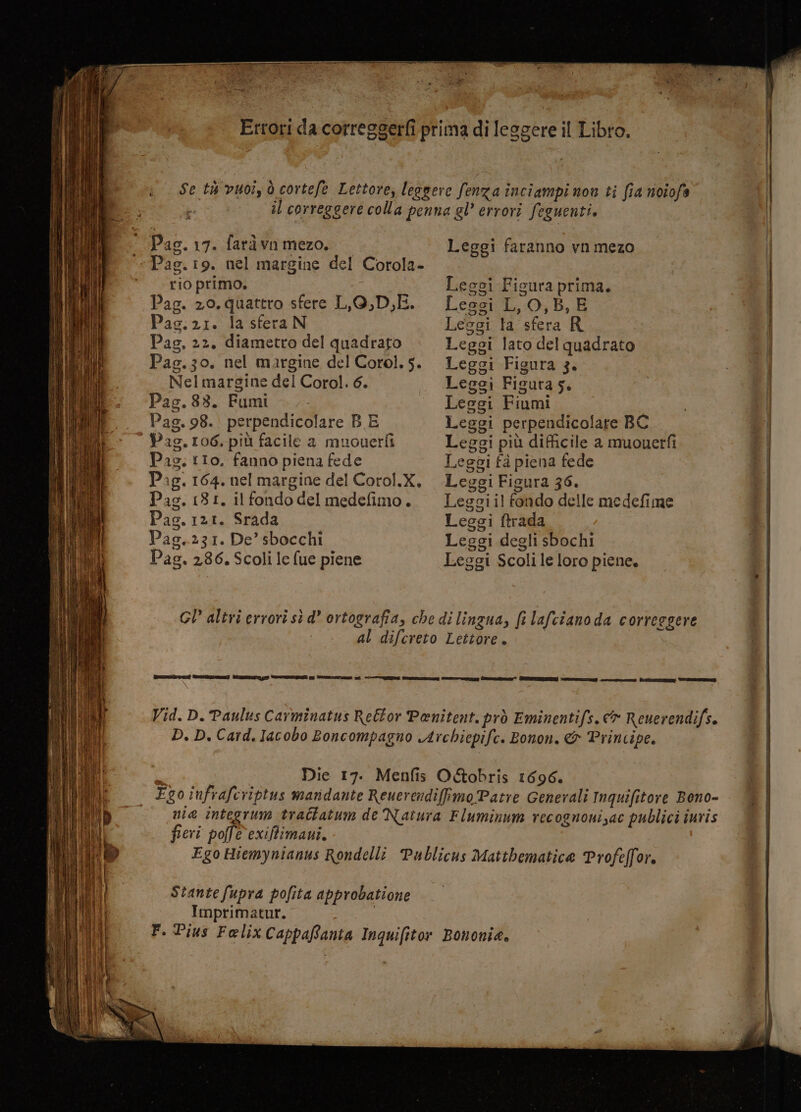 Errori da correggerſi prima di leggere il Libro.
Se tù vuoi, ò corteſe Lettore, leggere ſenza inciampi non ti ſia noioſo
il correggere colla penna gl' errori ſeguenti.
Pag. 17. ſarà vn mezo. Leggi ſaranno vn mezo
Pag. 19. nel margine del Corola-
rio primo. Leggi Figura prima.
Pag. 20. quattro sfere L,Q,D,E. Leggi L, O, B, E
Pag. 21. la sfera N Leggi la sfera R
Pag. 22. diametro del quadrato Leggi lato del quadrato
Pag. 30. nel margine del Corol. 5. Leggi Figura 3.
Nel margine del Corol. 6. Leggi Figura 5.
Pag. 88. Fumi Leggi Fiumi
Pag. 98. perpendicolare B E Leggi perpendicolare BC
Pag. 106. più facile a muouerſi Leggi più difficile a muouerſi
Pag. 110. fanno piena fede Leggi fà piena fede
Pag. 164. nel margine del Corol. X. Leggi Figura 36.
Pag. 181. il fondo del medeſimo. Leggi il fondo delle medeſime
Pag. 121. Srada Leggi ſtrada
Pag. 231. De' sbocchi Leggi degli sbochi
Pag. 286. Scoli le ſue piene Leggi Scoli le loro piene.
Gl' altri errori sì d' ortografia, che di lingua, ſi laſciano da correggere
al diſcreto Lettore.
Vid. D. Paulus Carminatus Rector Pœnitent. prò Eminentiſs. & Reuerendiſs.
D. D. Card. Iacobo Boncompagno Archiepiſc. Bonon. & Principe.
Die 17. Menſis Octobris 1696.
Ego infraſcriptus mandante Reuerendiſſimo Patre Generali Inquiſitore Bono-
niæ integrum tractatum de Natura Fluminum recognoui, ac publici iuris
fieri poſſe exiſtimaui.
Ego Hiemynianus Rondelli Publicus Matthematicæ Profeſſor.
Stante ſupra poſita approbatione
Imprimatur.
F. Pius Fælix Cappaſſanta Inquiſitor Bononiæ.